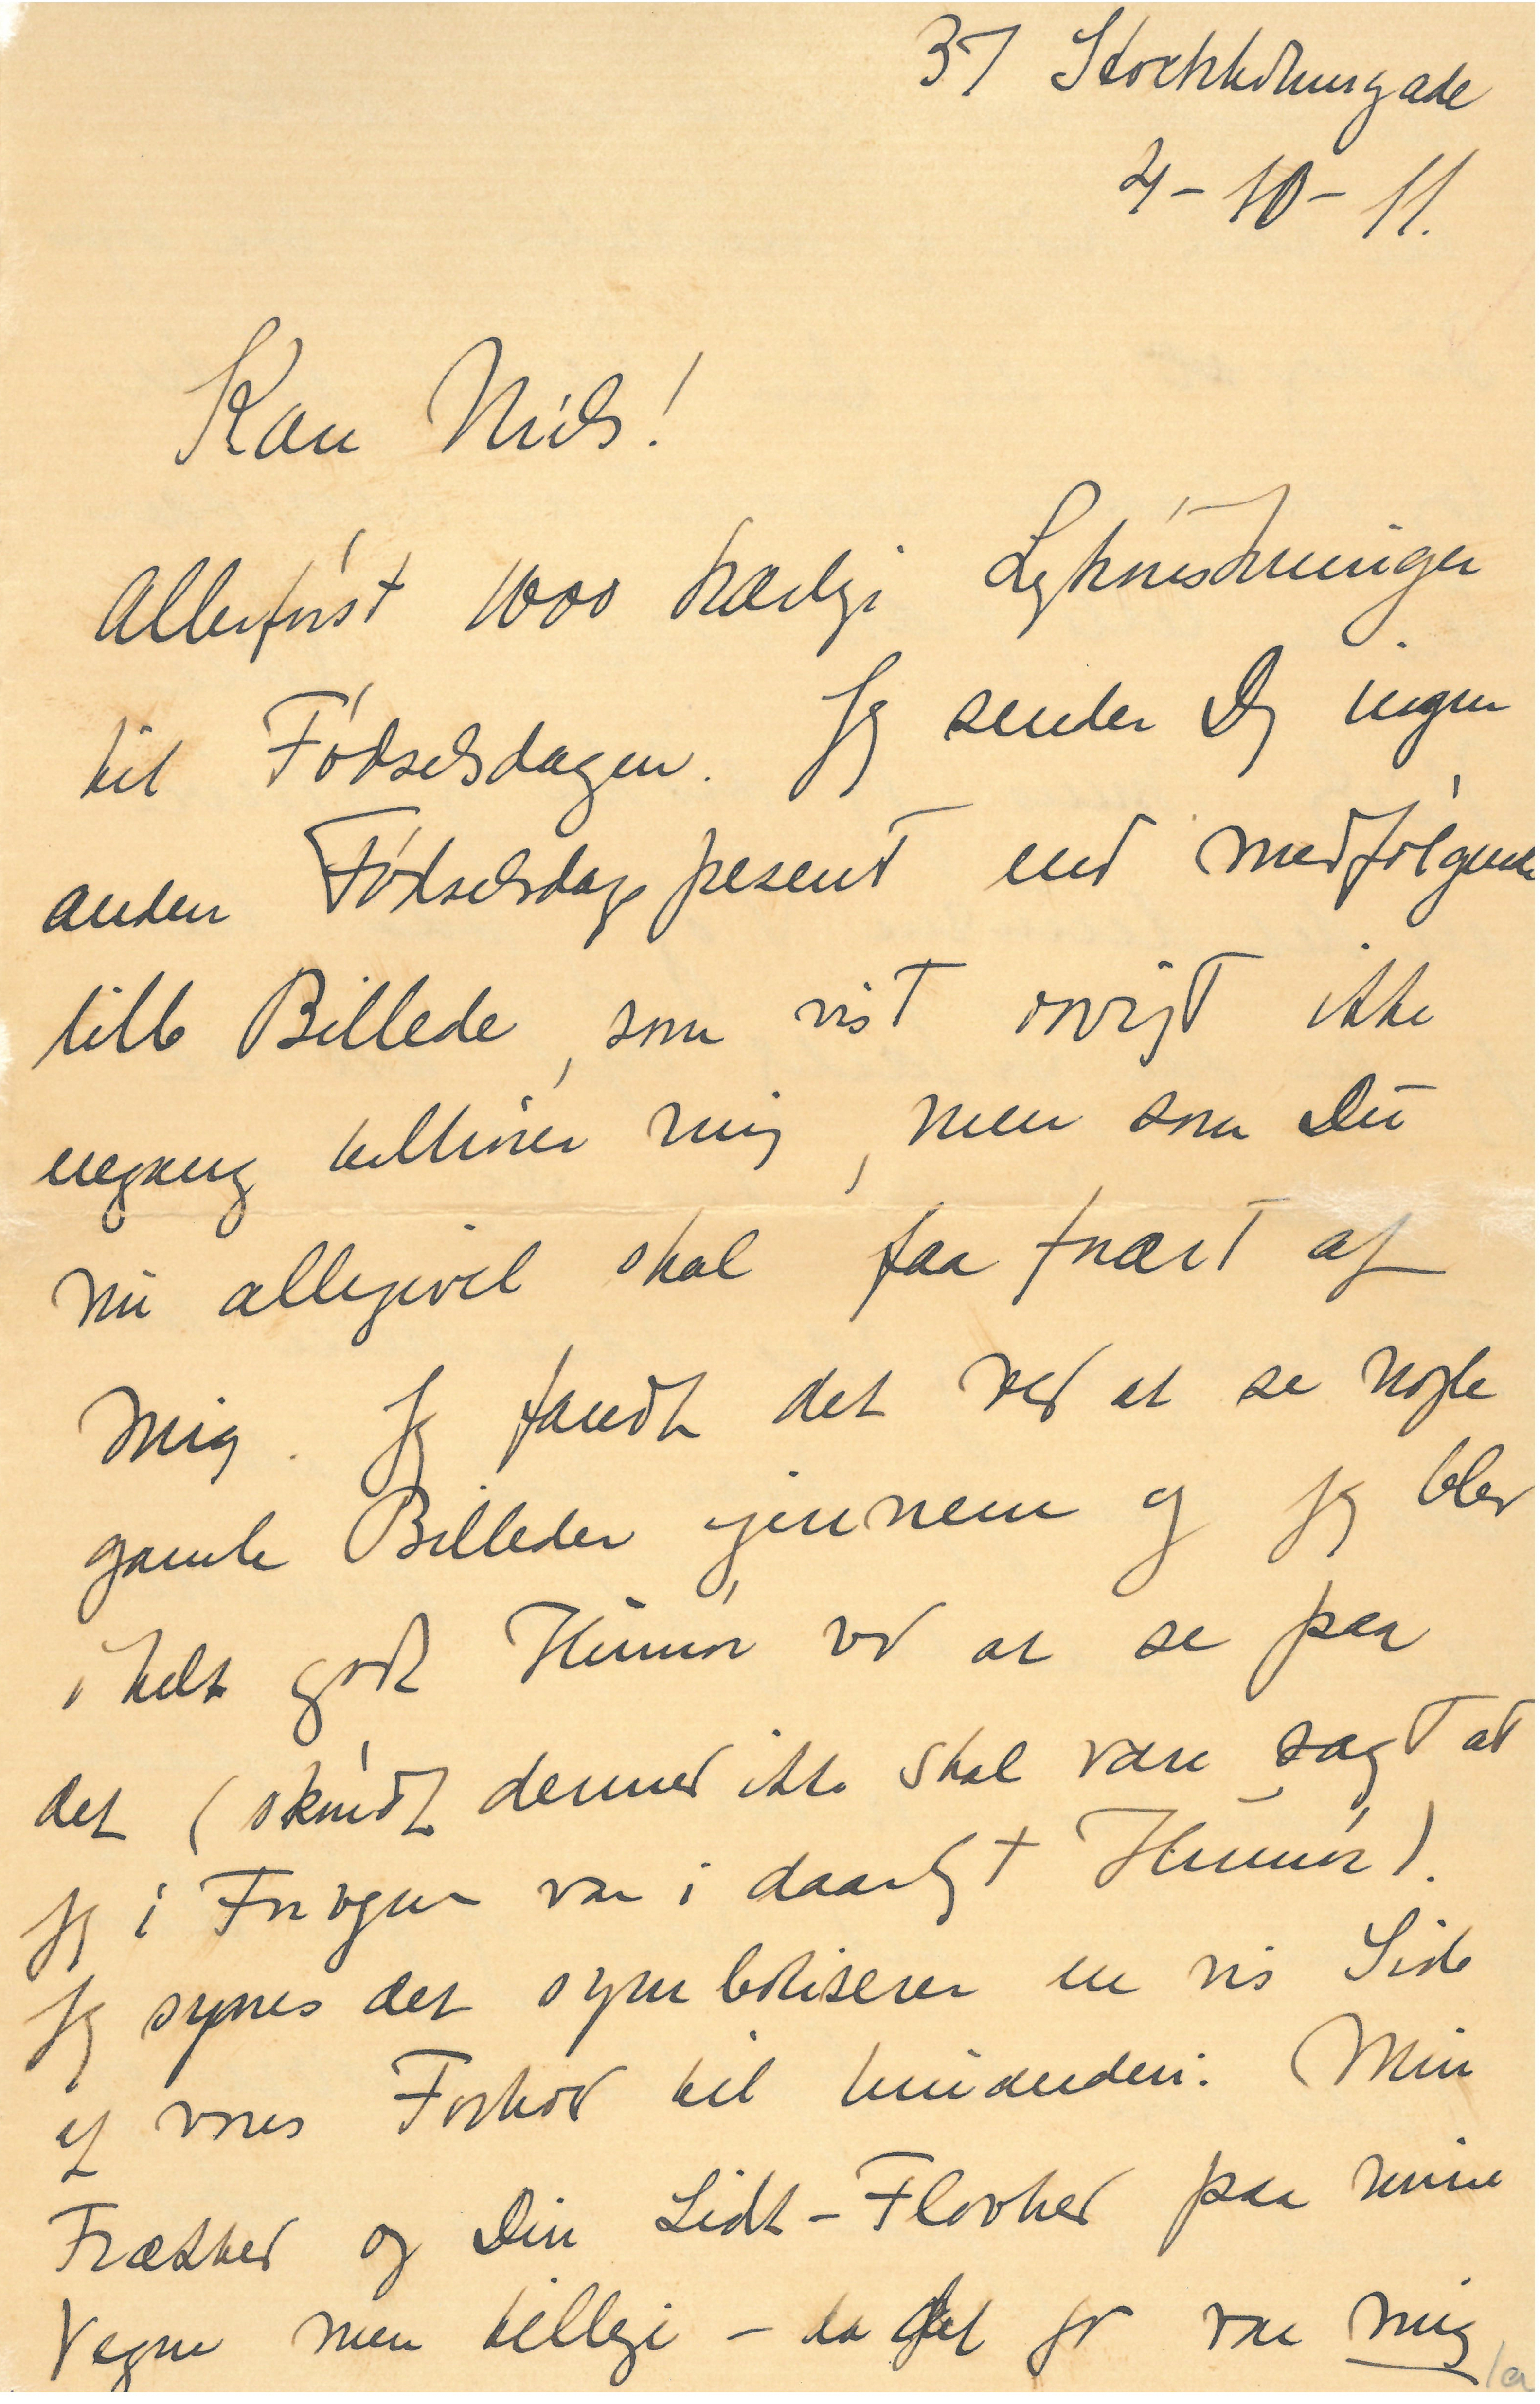 37 Stockholmsgade
4-10-11.
Kære Niels!
Allerførst 1000 kærlige Lykønskninger
til Fødselsdagen. Jeg sender Dig ingen
anden Fødselsdagspresent end medfølgende
lille Billede, som vist øvrigt ikke
engang tilhører mig, men som Du
nu alligevel skal faa forært af
mig. Jeg fandt det ved at se nogle
gamle Billeder igennem og jeg blev
i helt godt Humør ved at se paa
det (skøndt dermed ikke skal være sagt at
jeg i Forvejen var i daarligt Humør).
Jeg synes det symboliserer en vis Side
af vores Forhold til hinanden: Min
Frækhed og Din Lidt-Flovhed paa mine
Vegne men tillige - da det jo var mig
1a